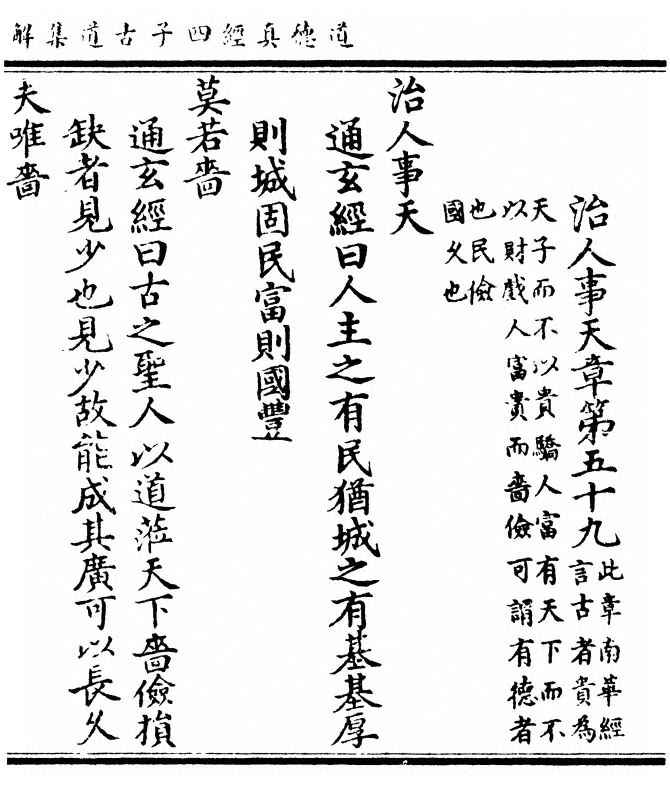 道德真經四子古道集解
治人事天章第五十九
此章南華經
言古者貴為
天子而不以貴驕人富有天下而不
以財戲人富貴而嗇儉可謂有德者
也民儉
國久也
治人事天
通玄經曰人主之有民猶城之有基基厚
則城固民富則國豐
莫若嗇
通玄經曰古之聖人以道蒞天下嗇儉損
缺者見少也見少故能成其廣可以長久
夫唯嗇